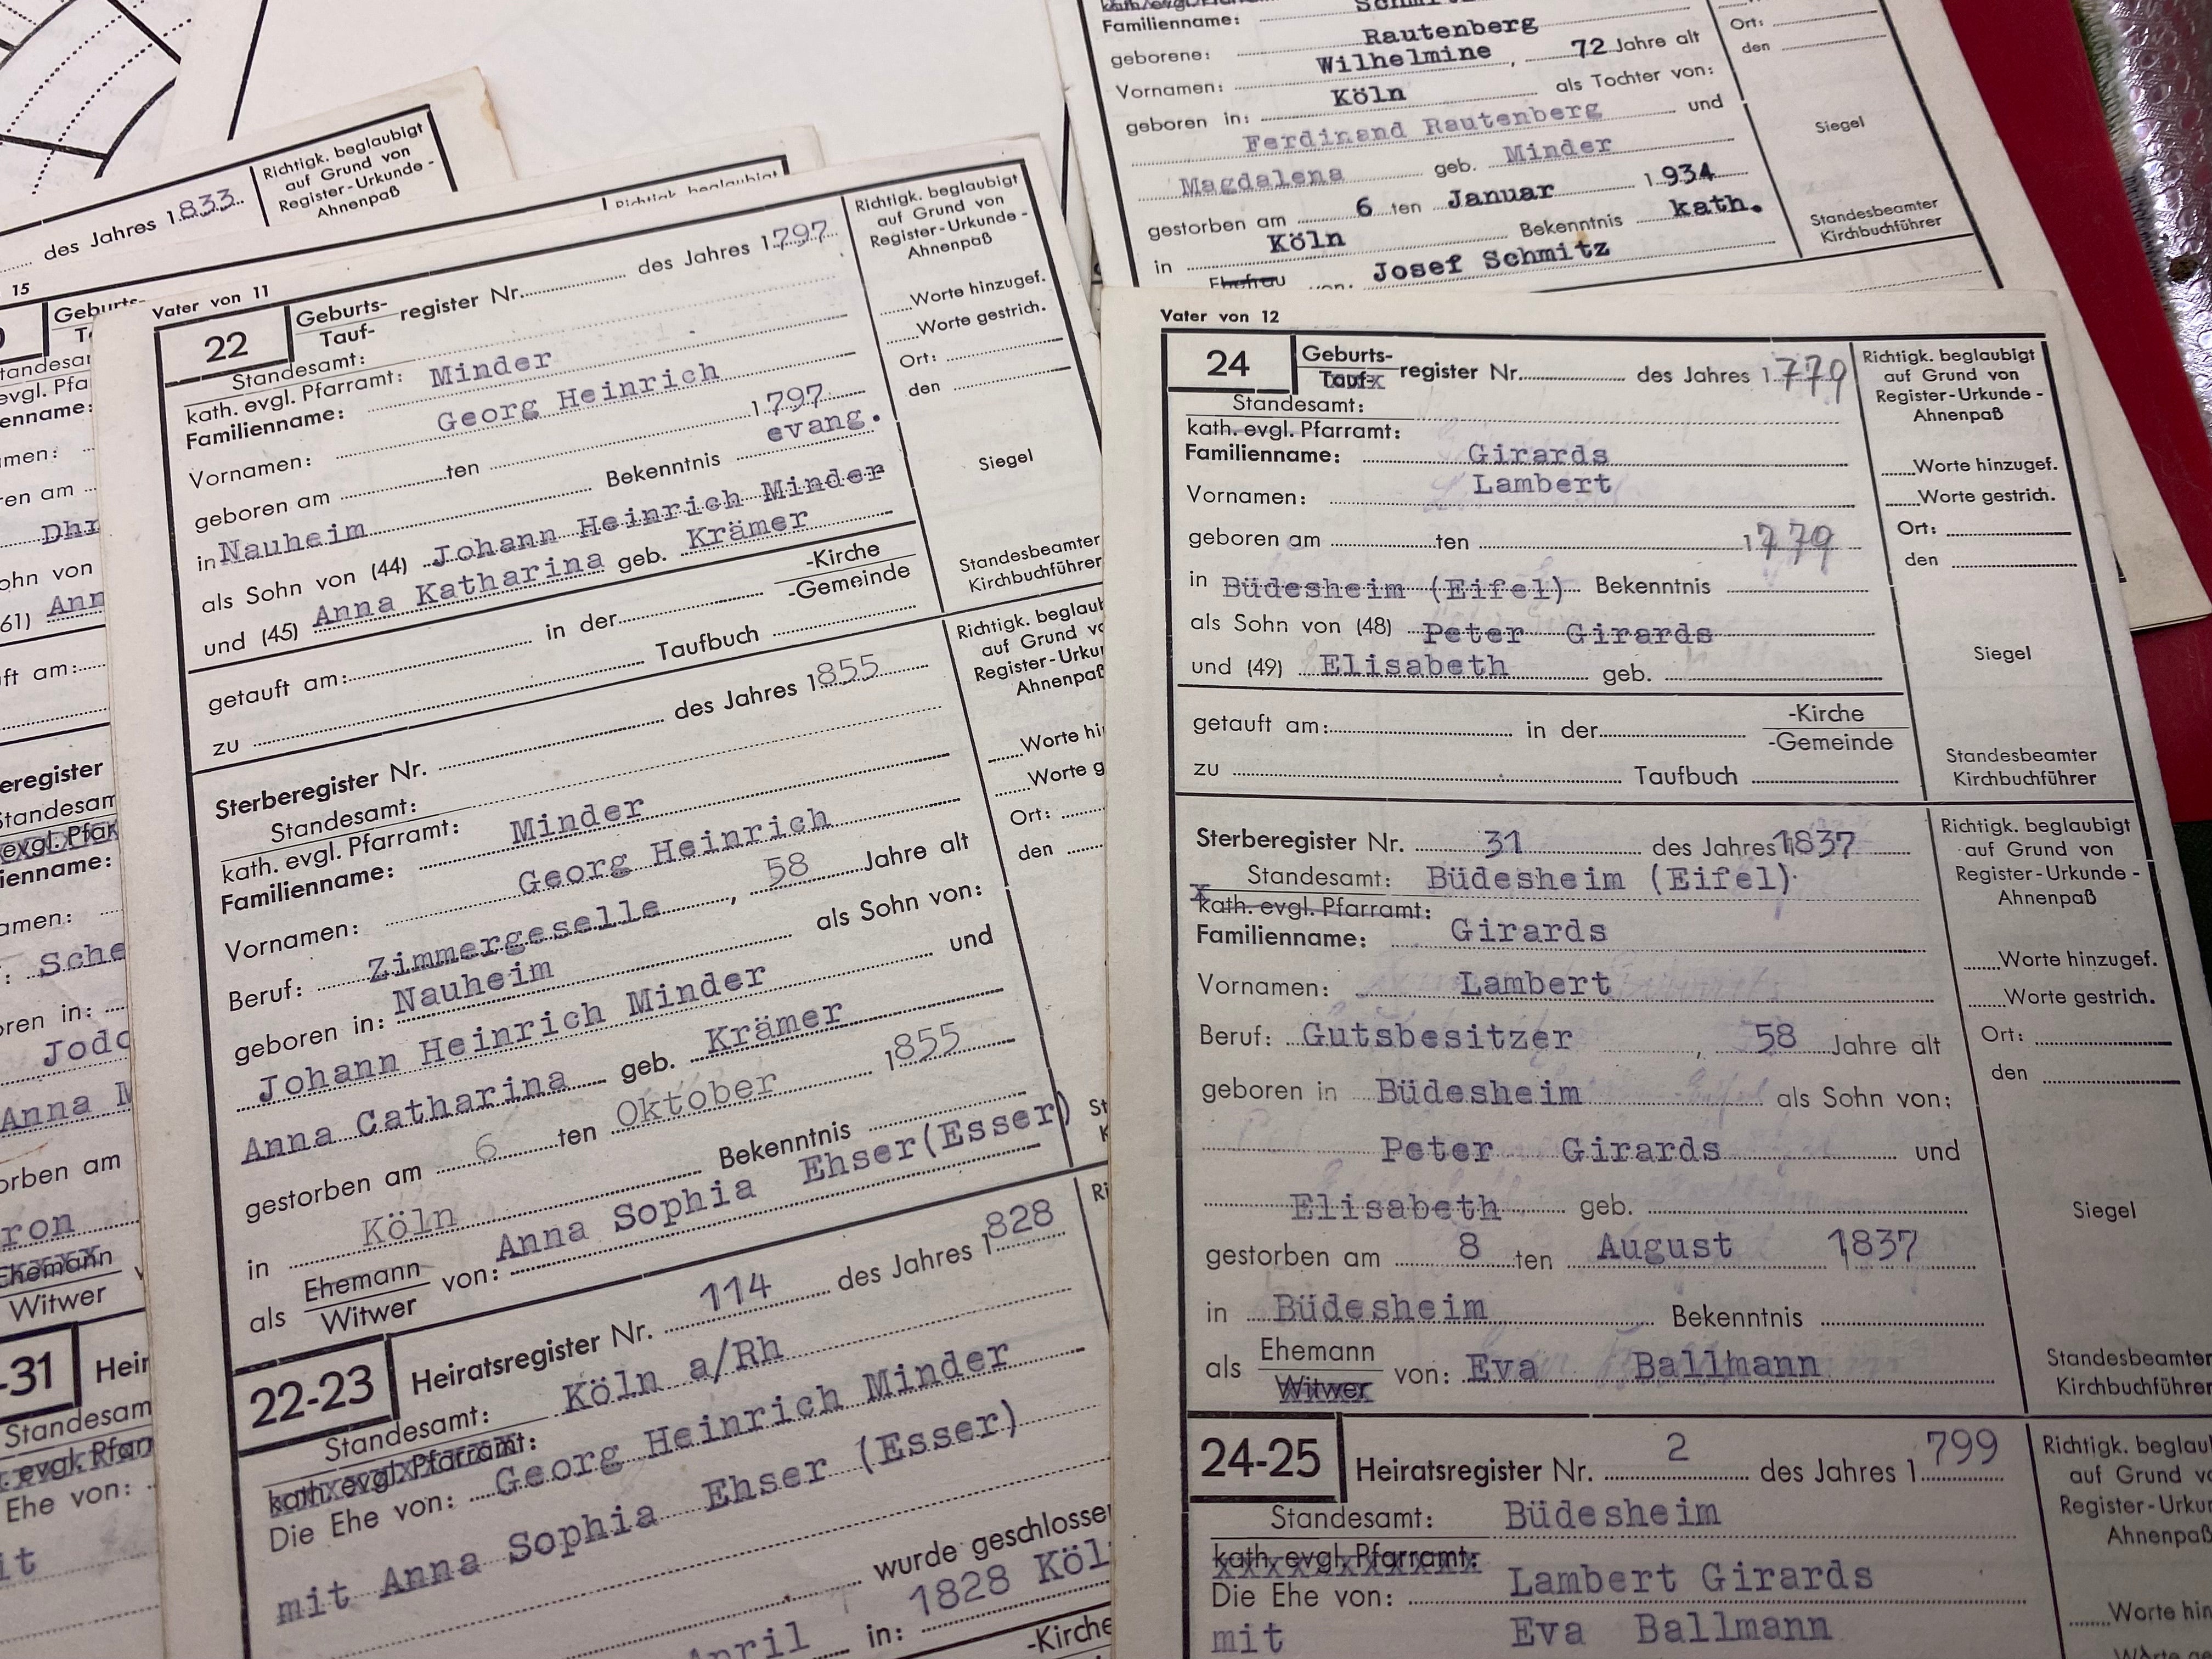 des Jahres 1833
Richtigk. beglaubigt
auf Grund von
Register-Urkunde-
Ahnenpaß
15
Geburts-
Standesamt
Familienname:
Dhr
Sohn von
61) Ann
getauft am:
Sterberegister
Standesam
evgl. Pfar
Familienname:
Sche
geboren in:
Jodo
Anna M
gestorben am
ron
Ehemann
Witwer
-31
Heir
Standesam
evgl. Pfarr
Ehe von:
Richtigk. beglaubigt
Vater von 11
22
Geburts-
Tauf-
register Nr. des Jahres 1797
Standesamt:
kath. evgl. Pfarramt:
Familienname: Minder
Vornamen: Georg Heinrich
geboren am ten 1797
in Nauheim Bekenntnis evang.
als Sohn von (44) Johann Heinrich Minder
und (45) Anna Katharina geb. Krämer
getauft am: in der -Kirche
-Gemeinde
zu Taufbuch
Richtigk. beglaubigt
auf Grund von
Register-Urkunde-
Ahnenpaß
Worte hinzugef.
Worte gestrich.
Ort:
den
Siegel
Standesbeamter
Kirchbuchführer
Sterberegister Nr. des Jahres 1855
Standesamt:
kath. evgl. Pfarramt:
Familienname: Minder
Vornamen: Georg Heinrich
Beruf: Zimmergeselle, 58 Jahre alt
geboren in: Nauheim als Sohn von:
Johann Heinrich Minder und
Anna Catharina geb. Krämer
gestorben am 6 ten Oktober 1855
in Köln Bekenntnis
als Ehemann
Witwer
von: Anna Sophia Ehser(Esser)
Richtigk. beglaub
auf Grund vo
Register-Urku
Ahnenpaß
Worte hi
Worte g
Ort:
den
22-23
Heiratsregister Nr. 114 des Jahres 1828
Standesamt: Köln a/Rh
kath. evgl. Pfarramt:
Die Ehe von: Georg Heinrich Minder
mit Anna Sophia Ehser (Esser)
wurde geschlosse
April in: 1828 Köl
-Kirche
Familienname: Schmit
geborene: Rautenberg
Vornamen: Wilhelmine, 72 Jahre alt
geboren in: Köln als Tochter von:
Ferdinand Rautenberg und
Magdalena geb. Minder
gestorben am 6 ten Januar 1934
in Köln Bekenntnis kath.
Ehefrau von: Josef Schmitz
Ort:
den
Siegel
Standesbeamter
Kirchbuchführer
Vater von 12
24
Geburts-
Tauf-
register Nr. des Jahres 1779
Standesamt:
kath. evgl. Pfarramt:
Familienname: Girards
Vornamen: Lambert
geboren am ten 1779
in Büdesheim (Eifel) Bekenntnis
als Sohn von (48) Peter Girards
und (49) Elisabeth geb.
getauft am: in der -Kirche
-Gemeinde
zu Taufbuch
Richtigk. beglaubigt
auf Grund von
Register-Urkunde-
Ahnenpaß
Worte hinzugef.
Worte gestrich.
Ort:
den
Siegel
Standesbeamter
Kirchbuchführer
Sterberegister Nr. 31 des Jahres 1837
Standesamt: Büdesheim (Eifel)
kath. evgl. Pfarramt:
Familienname: Girards
Vornamen: Lambert
Beruf: Gutsbesitzer, 58 Jahre alt
geboren in Büdesheim als Sohn von:
Peter Girards und
Elisabeth geb.
gestorben am 8 ten August 1837
in Büdesheim Bekenntnis
als Ehemann
Witwer
von: Eva Ballmann
Richtigk. beglaubigt
auf Grund von
Register-Urkunde-
Ahnenpaß
Worte hinzugef.
Worte gestrich.
Ort:
den
Siegel
Standesbeamter
Kirchbuchführer
24-25
Heiratsregister Nr. 2 des Jahres 1799
Standesamt: Büdesheim
kath. evgl. Pfarramt:
Die Ehe von: Lambert Girards
mit Eva Ballmann
Richtigk. beglau
auf Grund vo
Register-Urku
Ahnenpaß
Worte hin